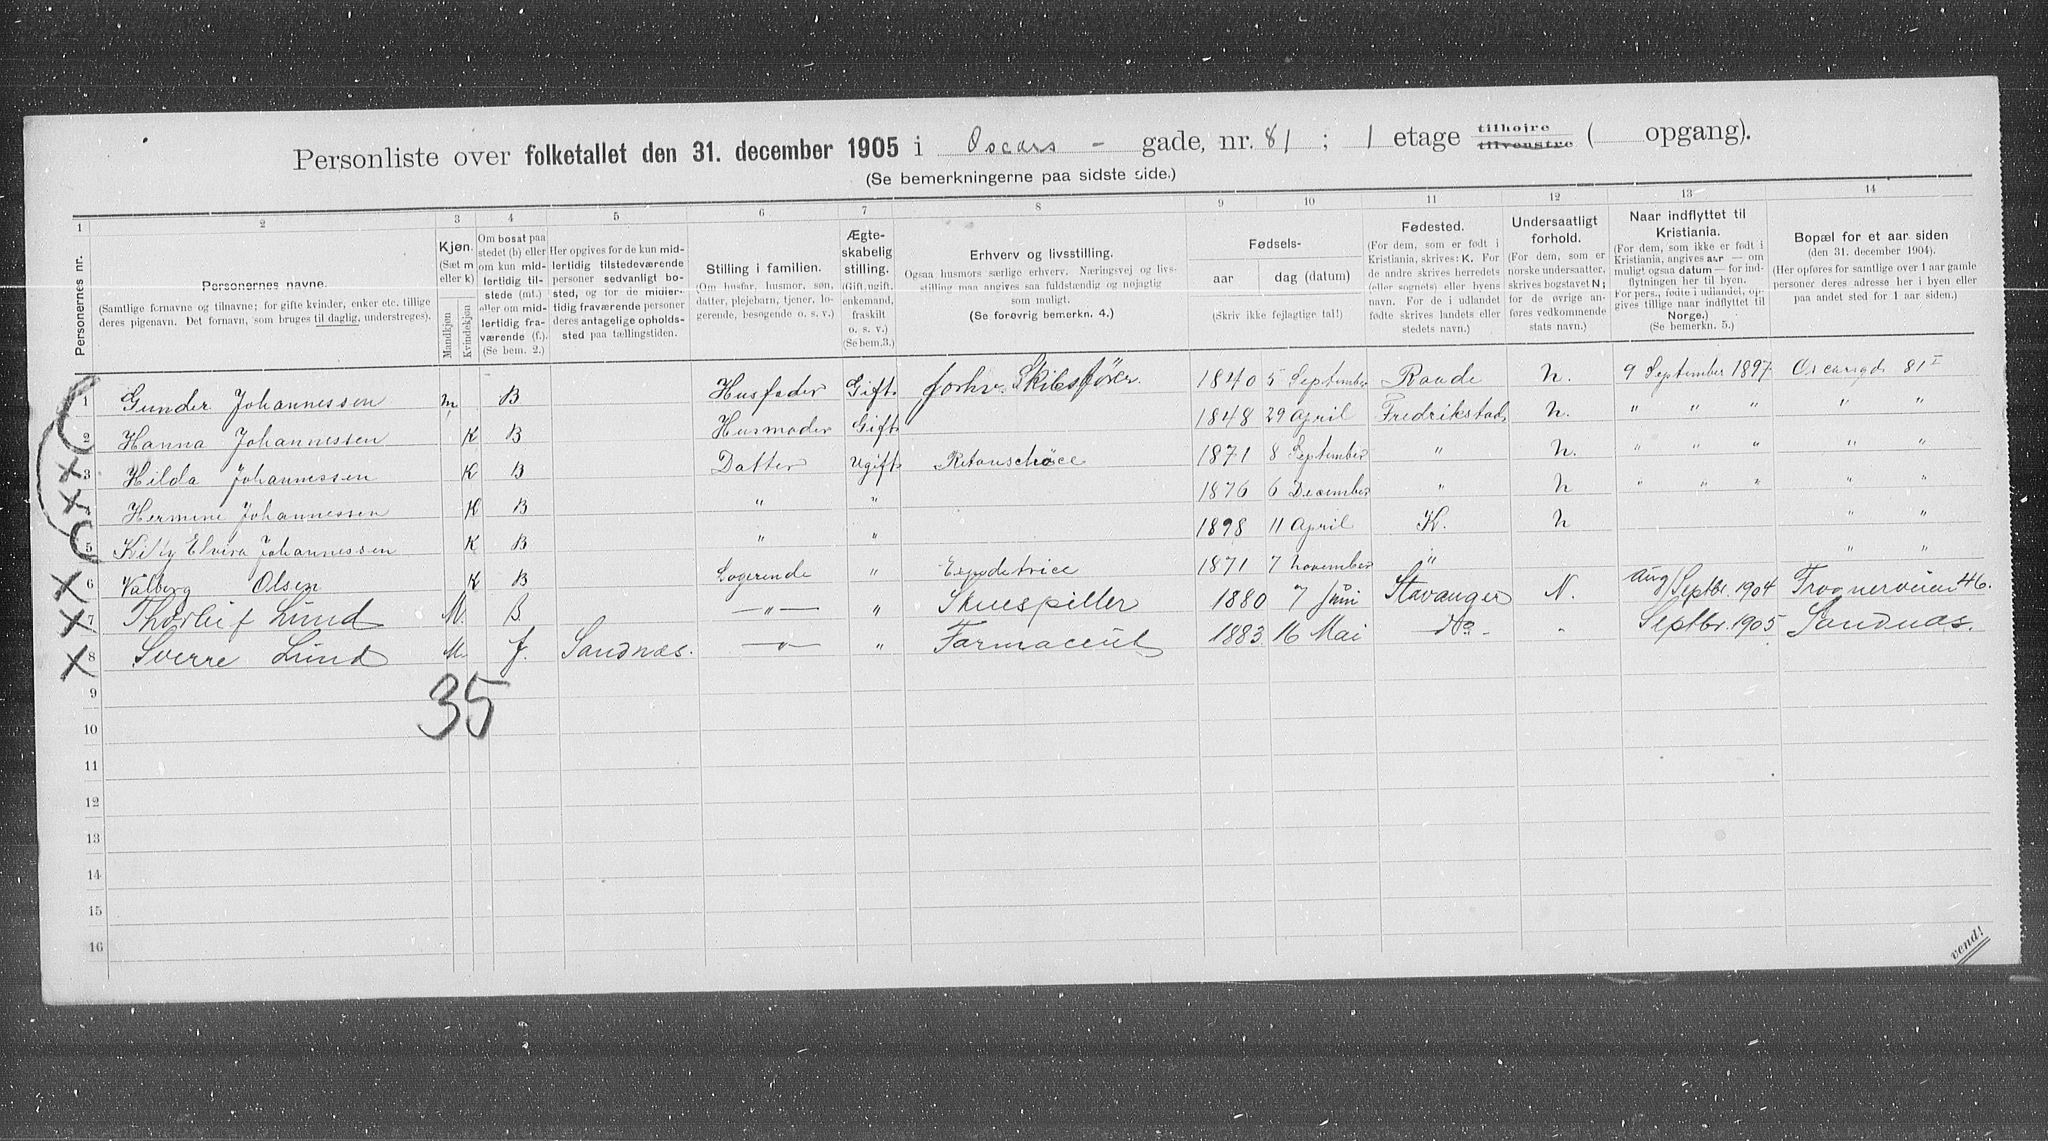 Personliste over folketallet den 31. december 1905 i Oscars - gade, nr. 81 ; 1 etage tilhøjre tilvenstre ( opgang).
(Se bemerkningerne paa sidste side.)
1 2 3 4 5 6 7 8 9 10 11 12 13 14
Personernes nr.
Personernes navne.
(Samtlige fornavne og tilnavne; for gifte kvinder, enker etc. tillige
deres pigenavn. Det fornavn, som bruges til daglig, understreges).
Kjøn.
(Sæt m
eller k)
Mandkjøn
Kvindekjøn
Om bosat paa
stedet (b) eller
om kun mid-
lertidig til-
stede (mt.)
eller om mid-
lertidig fra-
værende (f.).
(Se bem. 2.)
Her opgives for de kun mid-
lertidig tilstedeværende
personer sedvanligt bo-
sted, og for de midler-
tidig fraværende personer
deres antagelige opholds-
sted paa tællingstiden.
Stilling i familien.
(Om husfar, husmor, søn,
datter, plejebarn, tjener, lo-
gerende, besøgende o. s. v.)
Ægte-
skabelig
stilling.
(Gift, ugift,
enkemand,
fraskilt
o. s. v.)
(Se bem. 3.)
Erhverv og livsstilling.
Ogsaa husmors særlige erhverv. Næringsvej og livs-
stilling maa angives saa fuldstændig og nøjagtig
som muligt.
(Se forøvrig bemerkn. 4.)
Fødsels-
aar dag (datum)
(Skriv ikke fejlagtige tal!)
Fødested.
(For dem, som er født i
Kristiania, skrives: K. For
de andre skrives herredets
(eller sognets) eller byens
navn. For de i udlandet
fødte skrives landets eller
stedets navn.)
Undersaatligt
forhold.
(For dem, som er
norske undersaatter,
skrives bogstavet N;
for de øvrige an-
føres vedkommende
stats navn.)
Naar indflyttet til
Kristiania.
(For dem, som ikke er født i
Kristiania, angives aar — om
muligt ogsaa datum — for ind-
flytningen her til byen.
For pers., fødte i udlandet, op-
gives tillige naar indflyttet til
Norge.)
(Se bemerkn. 5.)
Bopæl for et aar siden
(den 31. december 1904).
(Her opføres for samtlige over 1 aar gamle
personer deres adresse her i byen eller
paa andet sted for 1 aar siden.)
1 Gunder Johannessen m B Husfader Gift forhv. Skibsfører. 1840 5 September Raade N. 9 September 1897 Oscarsgd. 81 I
2 Hanna Johannessen K B Husmoder Gift 1848 29 April Fredrikstad N. " " " " "
3 Hilda Johannessen K B Datter Ugift 1871 8 September " N. " " " " "
Hermine Johannessen K B " " 1876 6 December " N " " " " "
5 Kitty Elvira Johannessen K B " " 1898 11 April K. N " "
6 Valborg Olsen K B Logerende " Expeditrice 1871 7 November " " "
7 Thorleif Lund M. B. —"— " Skuespiller 1880 7 Juni Stavanger N. Aug/Septbr. 1904 Trognerveien 46.
8 Sverre Lund M. f. Sandnæs. —"— " Farmaceut 1883 16 Mai Do. " Septbr. 1905 Sandnæs.
35
9
10
11
12
13
14
15
16
vend!